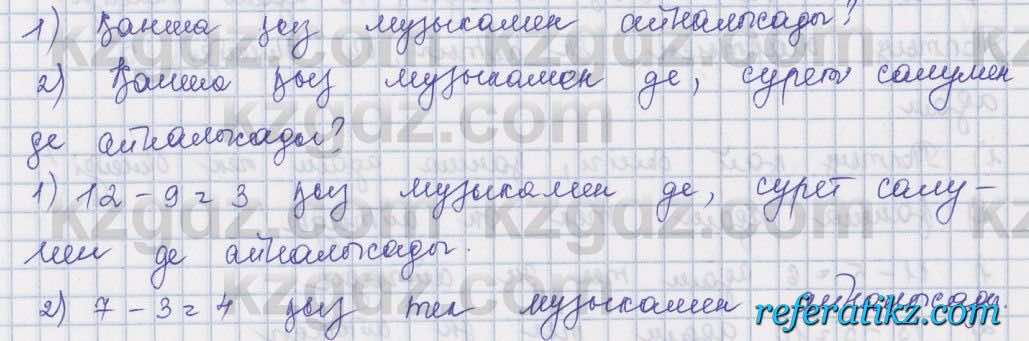 1) Қанша қыз музыкамен айналысады?
2) Қанша қыз музыкамен де, сурет салумен
де айналысады?
1) 12 - 9 = 3 қыз музыкамен де, сурет салу -
мен де айналысады.
2) 7 - 3 = 4 қыз тек музыкамен айналысады.
kzgdz.com
referatikz.com